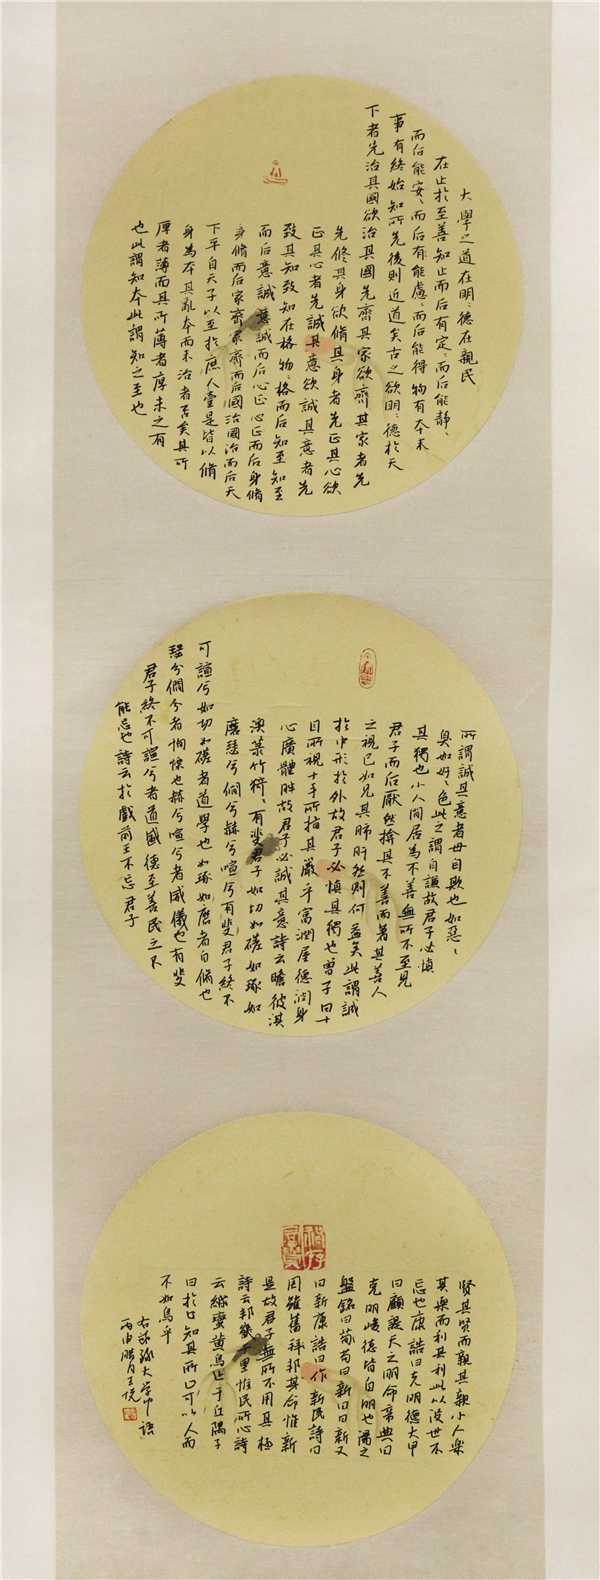 大學之道在明〻德在親民
在止於至善知止而后有定〻而后能靜〻
而后能安〻而后有能慮〻而后能得物有本末
事有終始知所先後則近道矣古之欲明〻德於天
下者先治其國欲治其國先齊其家欲齊其家者先
先修其身欲脩其身者先正其心欲
正其心者先誠其意欲誠其意者先
致其知致知在格物〻格而后知至知至
而后意誠意誠而后心正心正而后身脩
身脩而后家齊家齊而后國治國治而后天
下平自天子以至於庶人壹是皆以脩
身為本其亂本而末治者否矣其所
厚者薄而其所薄者厚未之有
也此謂知本此謂知之至也
所謂誠其意者毋自欺也如惡〻
臭如好〻色此之謂自謙故君子必慎
其獨也小人閒居為不善無所不至見
君子而后厭然揜其不善而著其善人
之視己如見其肺肝然則何益矣此謂誠
於中形於外故君子必慎其獨也曾子曰十
目所視十手所指其嚴乎富潤屋德潤身
心廣體胖故君子必誠其意詩云瞻彼淇
澳菉竹猗〻有斐君子如切如磋如琢如
磨瑟兮僩兮赫兮喧兮有斐君子終不
可諠兮如切如磋者道學也如琢如磨者自脩也
瑟兮僩兮者恂慄也赫兮喧兮者威儀也有斐
君子終不可諠兮者道盛德至善民之不
能忘也詩云於戲前王不忘君子
賢其賢而親其親小人樂
其樂而利其利此以沒世不
忘也康誥曰克明德大甲
曰顧諟天之明命帝典曰
克明峻德皆自明也湯之
盤銘曰苟苟日新日日新又
日新康誥曰作新民詩曰
周雖舊邦其命惟新
是故君子無所不用其極
詩云邦畿千里惟民所止詩
云緡蠻黃鳥止于丘隅子
曰於止知其所止可以人而
不如鳥乎
右錄大學中語
丙申臘月